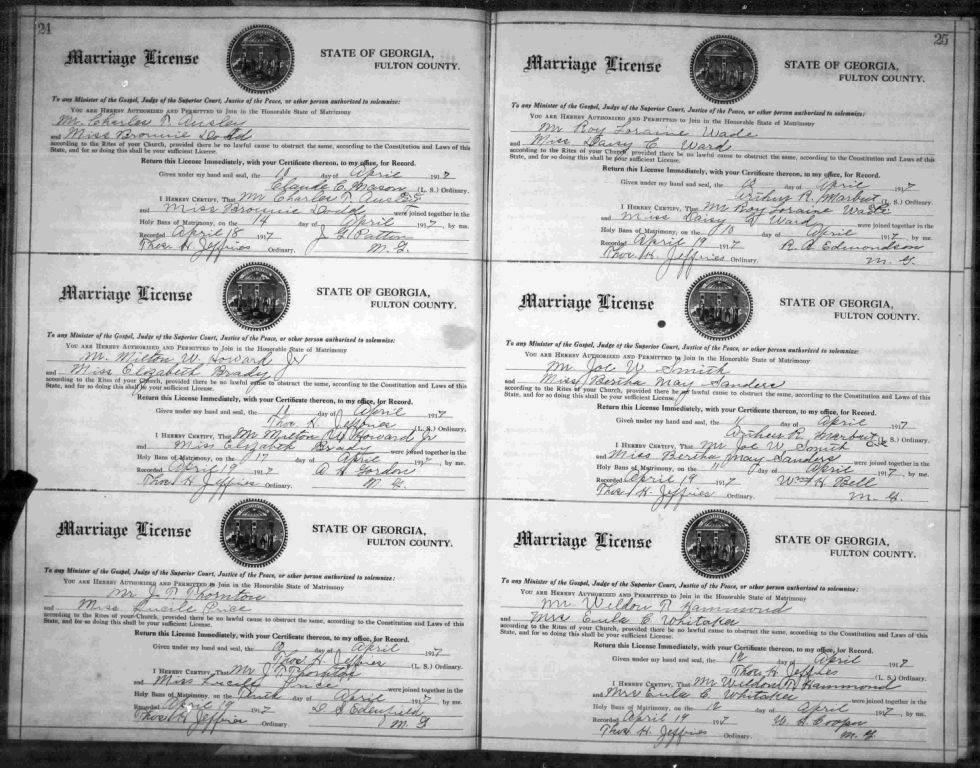 24
Marriage License
STATE OF GEORGIA,
FULTON COUNTY.
To any Minister of the Gospel, Judge of the Superior Court, Justice of the Peace, or other person authorized to solemnize:
YOU ARE HEREBY AUTHORIZED AND PERMITTED to Join in the Honorable State of Matrimony
Mr. Charles T. Ausley
and Miss Brownie Dodd
according to the Rites of your Church, provided there be no lawful cause to obstruct the same, according to the Constitution and Laws of this
State, and for so doing this shall be your sufficient License.
Return this License Immediately, with your Certificate thereon, to my office, for Record.
Given under my hand and seal, the day of April 1917
Claude C. Mason (L. S.) Ordinary.
I HEREBY CERTIFY, That Mr Charles T.
and Miss Brownie Dodd were joined together in the
Holy Bans of Matrimony, on the 14 day of April 1917, by me.
Recorded April 18 1917 J. G. Patton
Thos. H. Jeffries Ordinary. M. G.
Marriage License
STATE OF GEORGIA,
FULTON COUNTY.
To any Minister of the Gospel, Judge of the Superior Court, Justice of the Peace, or other person authorized to solemnize:
YOU ARE HEREBY AUTHORIZED AND PERMITTED to Join in the Honorable State of Matrimony
Mr. Milton W. Howard Jr
and Miss Elizabeth Brady
according to the Rites of your Church, provided there be no lawful cause to obstruct the same, according to the Constitution and Laws of this
State, and for so doing this shall be your sufficient License.
Return this License Immediately, with your Certificate thereon, to my office, for Record.
Given under my hand and seal, the day of April 1917
Thos. H. Jeffries (L. S.) Ordinary.
I HEREBY CERTIFY, That Mr Milton W Howard Jr
and Miss Elizabeth Brady were joined together in the
Holy Bans of Matrimony, on the 17 day of April 1917, by me.
Recorded April 19 1917 A. H. Gordon
Thos H. Jeffries Ordinary. M. G.
Marriage License
STATE OF GEORGIA,
FULTON COUNTY.
To any Minister of the Gospel, Judge of the Superior Court, Justice of the Peace, or other person authorized to solemnize:
YOU ARE HEREBY AUTHORIZED AND PERMITTED to Join in the Honorable State of Matrimony
Mr J. T. Thornton
and Miss Lucile Price
according to the Rites of your Church, provided there be no lawful cause to obstruct the same, according to the Constitution and Laws of this
State, and for so doing this shall be your sufficient License.
Return this License Immediately, with your Certificate thereon, to my office, for Record.
Given under my hand and seal, the day of April 1917
Thos H. Jeffries (L. S.) Ordinary.
I HEREBY CERTIFY, That Mr J. T. Thornton
and Miss Lucile Price were joined together in the
Holy Bans of Matrimony, on the day of April 1917, by me.
Recorded April 19 1917 Edenfield
Thos H Jeffries Ordinary. M. G
25
Marriage License
STATE OF GEORGIA,
FULTON COUNTY.
To any Minister of the Gospel, Judge of the Superior Court, Justice of the Peace, or other person authorized to solemnize:
YOU ARE HEREBY AUTHORIZED AND PERMITTED to Join in the Honorable State of Matrimony
Mr Roy Loraine Wade
and Miss Daisy C. Ward
according to the Rites of your Church, provided there be no lawful cause to obstruct the same, according to the Constitution and Laws of this
State, and for so doing this shall be your sufficient License.
Return this License Immediately, with your Certificate thereon, to my office, for Record.
Given under my hand and seal, the day of April 1917
Arthur R. Marbut (L. S.) Ordinary.
I HEREBY CERTIFY, That Mr Roy Loraine Wade
and Miss Daisy C Ward were joined together in the
Holy Bans of Matrimony, on the day of April 1917, by me.
Recorded April 19 1917 R. A. Edmondson
Thos H. Jeffries Ordinary. M. G.
Marriage License
STATE OF GEORGIA,
FULTON COUNTY.
To any Minister of the Gospel, Judge of the Superior Court, Justice of the Peace, or other person authorized to solemnize:
YOU ARE HEREBY AUTHORIZED AND PERMITTED to Join in the Honorable State of Matrimony
Mr Joe W. Smith
and Miss Bertha May Sanders
according to the Rites of your Church, provided there be no lawful cause to obstruct the same, according to the Constitution and Laws of this
State, and for so doing this shall be your sufficient License.
Return this License Immediately, with your Certificate thereon, to my office, for Record.
Given under my hand and seal, the 11 day of April 1917
Arthur R. Marbut Clk (L. S.) Ordinary.
I HEREBY CERTIFY, That Mr Joe W. Smith
and Miss Bertha May Sanders were joined together in the
Holy Bans of Matrimony, on the 11 day of April 1917, by me.
Recorded April 19 1917 Wm H Bell
Thos H. Jeffries Ordinary. M. G.
Marriage License
STATE OF GEORGIA,
FULTON COUNTY.
To any Minister of the Gospel, Judge of the Superior Court, Justice of the Peace, or other person authorized to solemnize:
YOU ARE HEREBY AUTHORIZED AND PERMITTED to Join in the Honorable State of Matrimony
Mr. Weldon R. Hammond
and Mrs Eula C Whitaker
according to the Rites of your Church, provided there be no lawful cause to obstruct the same, according to the Constitution and Laws of this
State, and for so doing this shall be your sufficient License.
Return this License Immediately, with your Certificate thereon, to my office, for Record.
Given under my hand and seal, the 12 day of April 1917
Thos H. Jeffries (L. S.) Ordinary.
I HEREBY CERTIFY, That Mr R Hammond
and Mrs Eula C. Whitaker were joined together in the
Holy Bans of Matrimony, on the 12 day of April 1917, by me.
Recorded April 19 1917 Cooper
Thos H. Jeffries Ordinary. M. G.